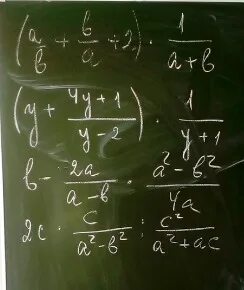 (a/b + b/a + 2) · 1/(a+b)
(y + (4y+1)/(y-2)) · 1/(y+1)
b - 2a/(a-b) · (a²-b²)/4a
2c · c/(a²-b²) : c²/(a²+ac)